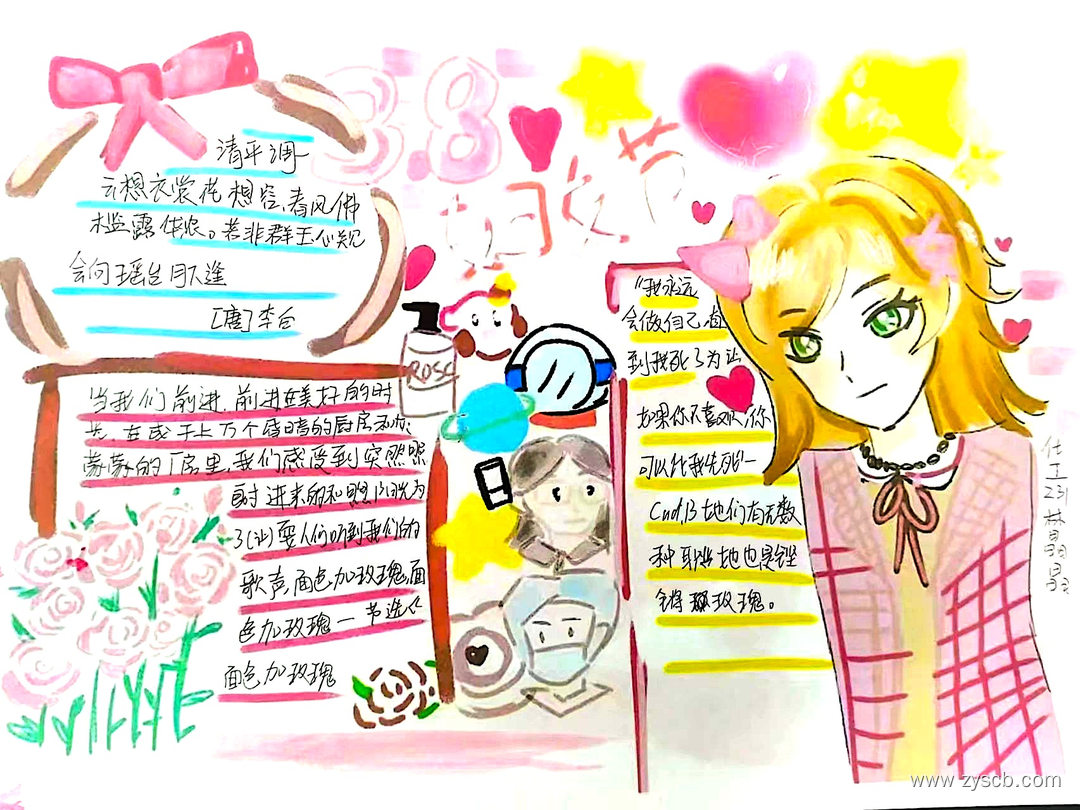 3.8
妇女节
清平调一
云想衣裳花想容,春风佛
槛露华浓。若非群玉山头见
会向瑶台月下逢
[唐]李白
当我们前进,前进在美好的时
光,在成千上万个昏暗的厨房和灰
蒙蒙的厂房里,我们感受到突然照
射进来的和煦阳光为
了(让)要人们听到我们的
歌声,面色加玫瑰,面
色加玫瑰一节选《
面色加玫瑰
ROSC
"我永远
会做自己,直
到我死了为止
如果你不喜欢,你
可以比我先死一
她们有无数
种职业她也是铿
锵玫瑰。
231
www.zyscb.com